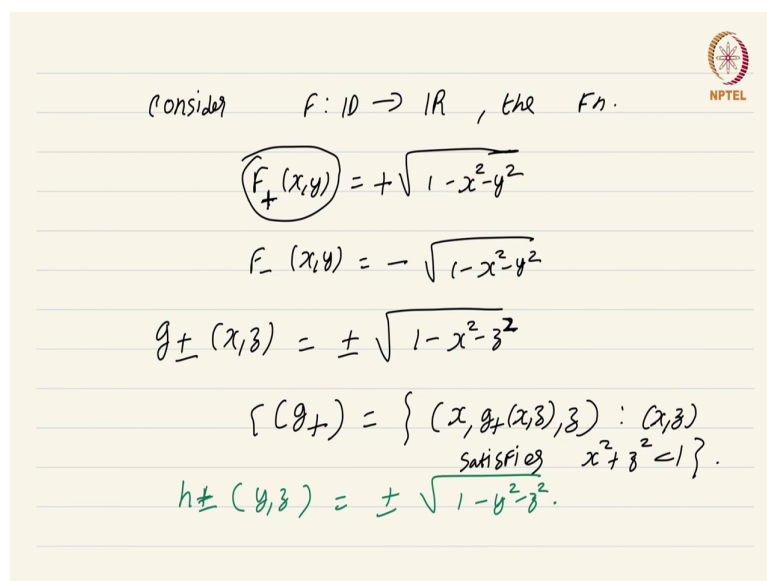 NPTEL
Consider F : ID → IR , the Fn.
F₊ (x,y) = + √(1 - x² - y²)
F₋ (x,y) = - √(1 - x² - y²)
g± (x,z) = ± √(1 - x² - z²)
Γ(g₊) = { (x, g₊(x,z), z) : (x,z)
satisfies x² + z² < 1 }.
h± (y,z) = ± √(1 - y² - z²).